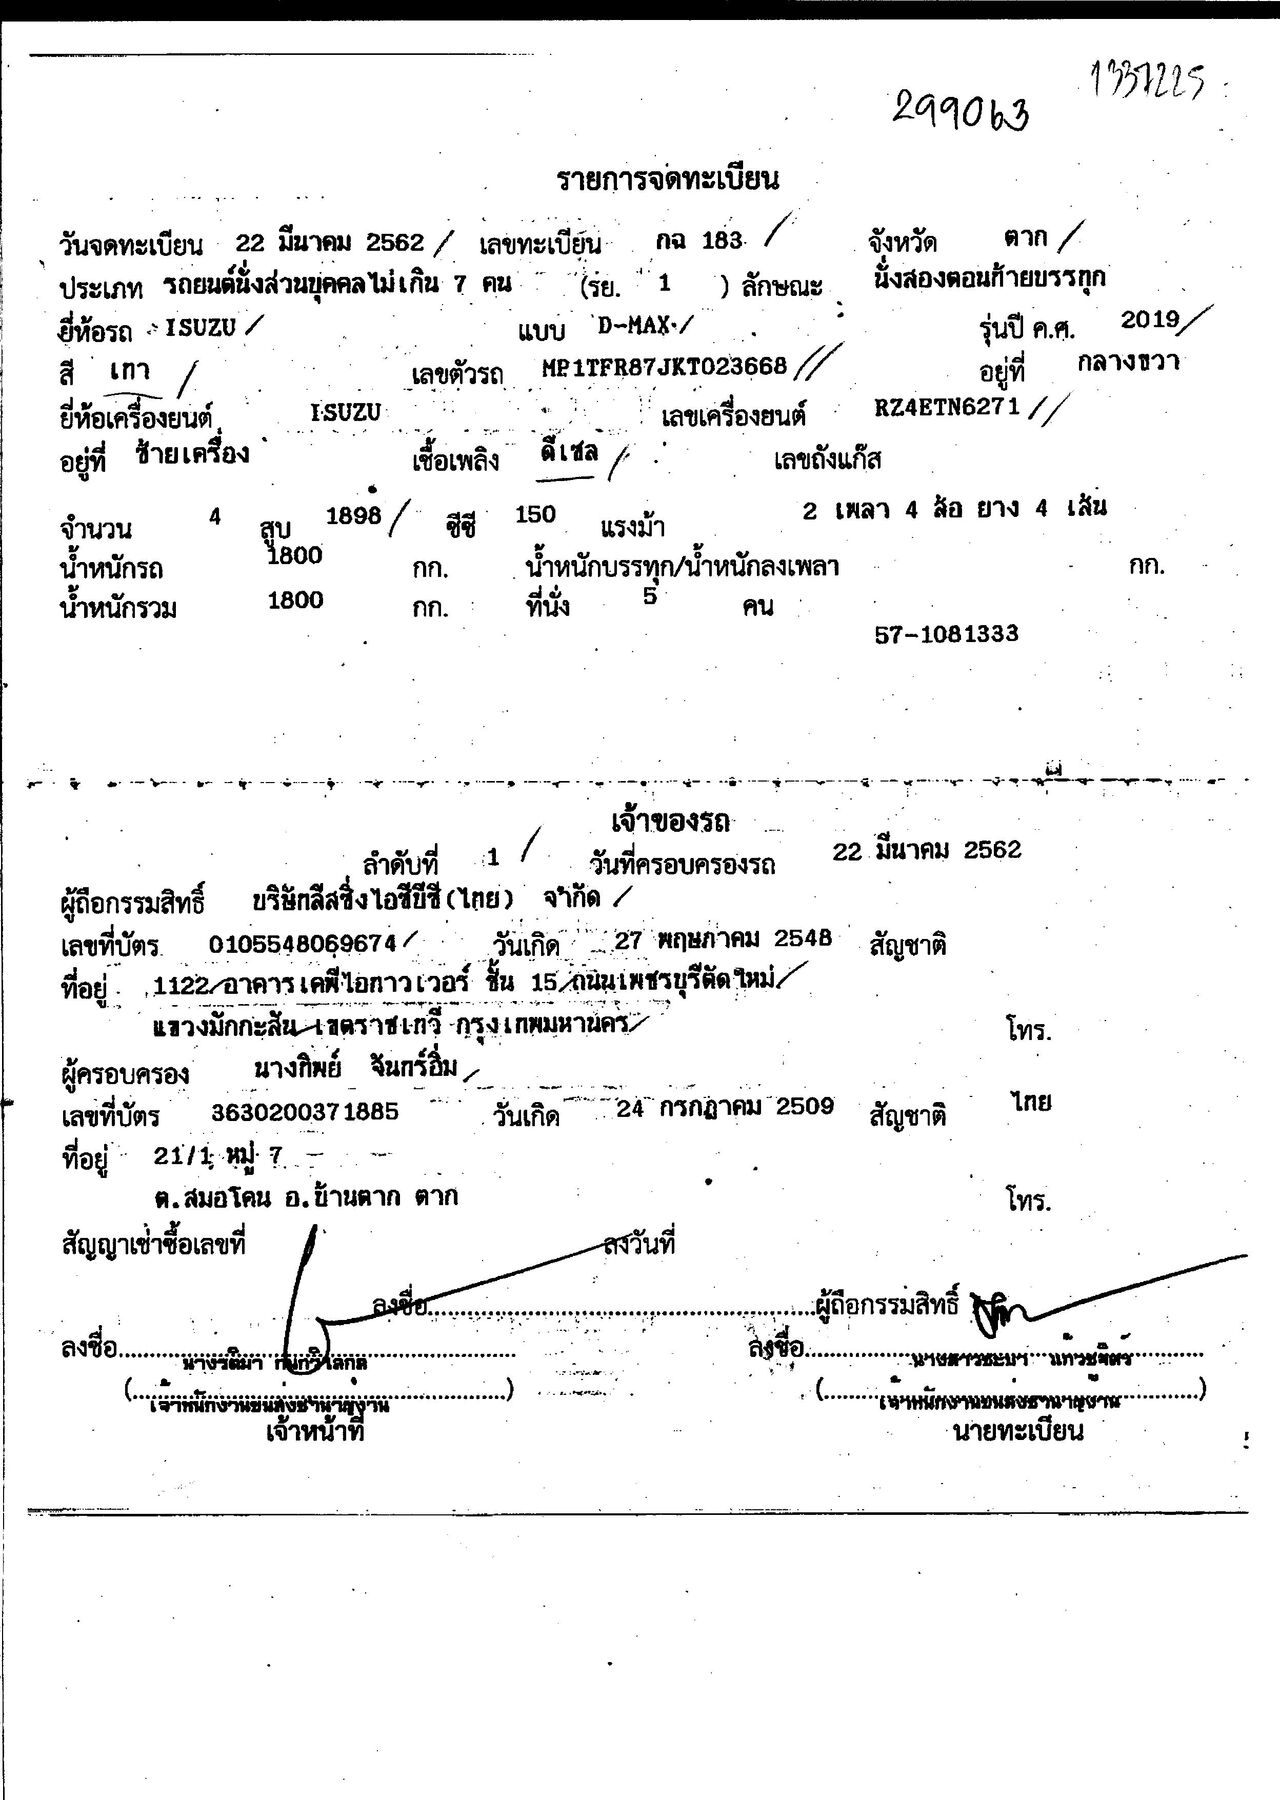 1337225
299063
รายการจดทะเบียน
วันจดทะเบียน 22 มีนาคม 2562 เลขทะเบียน กฉ 183 จังหวัด ตาก
ประเภท รถยนต์นั่งส่วนบุคคลไม่เกิน 7 คน (รย. 1 ) ลักษณะ นั่งสองตอนท้ายบรรทุก
ยี่ห้อรถ ISUZU แบบ D-MAX รุ่นปี ค.ศ. 2019
สี เทา เลขตัวรถ MP1TFR87JKT023668 อยู่ที่ กลางขวา
ยี่ห้อเครื่องยนต์ ISUZU เลขเครื่องยนต์ RZ4ETN6271
อยู่ที่ ซ้ายเครื่อง เชื้อเพลิง ดีเซล เลขถังแก๊ส
จำนวน 4 สูบ 1898 ซีซี 150 แรงม้า 2 เพลา 4 ล้อ ยาง 4 เส้น
น้ำหนักรถ 1800 กก. น้ำหนักบรรทุก/น้ำหนักลงเพลา - กก.
น้ำหนักรวม 1800 กก. ที่นั่ง 5 คน
57-1081333
เจ้าของรถ
ลำดับที่ 1 วันที่ครอบครองรถ 22 มีนาคม 2562
ผู้ถือกรรมสิทธิ์ บริษัทลีสซิ่งไอซีบีซี(ไทย) จำกัด
เลขที่บัตร 0105548069674 วันเกิด 27 พฤษภาคม 2548 สัญชาติ
ที่อยู่ 1122 อาคารเคพีไอทาวเวอร์ ชั้น 15 ถนนเพชรบุรีตัดใหม่
แขวงมักกะสัน เขตราชเทวี กรุงเทพมหานคร โทร.
ผู้ครอบครอง นางทิพย์ จันทร์อิ่ม
เลขที่บัตร 3630200371885 วันเกิด 24 กรกฎาคม 2509 สัญชาติ ไทย
ที่อยู่ 21/1 หมู่ 7
ต.สมอโคน อ.บ้านตาก ตาก โทร.
สัญญาเช่าซื้อเลขที่ ลงวันที่
ลงชื่อ ผู้ถือกรรมสิทธิ์
ลงชื่อ ลงชื่อ
นางรติมา
เจ้าพนักงานขนส่งชำนาญงาน เจ้าพนักงานขนส่งชำนาญงาน
เจ้าหน้าที่ นายทะเบียน